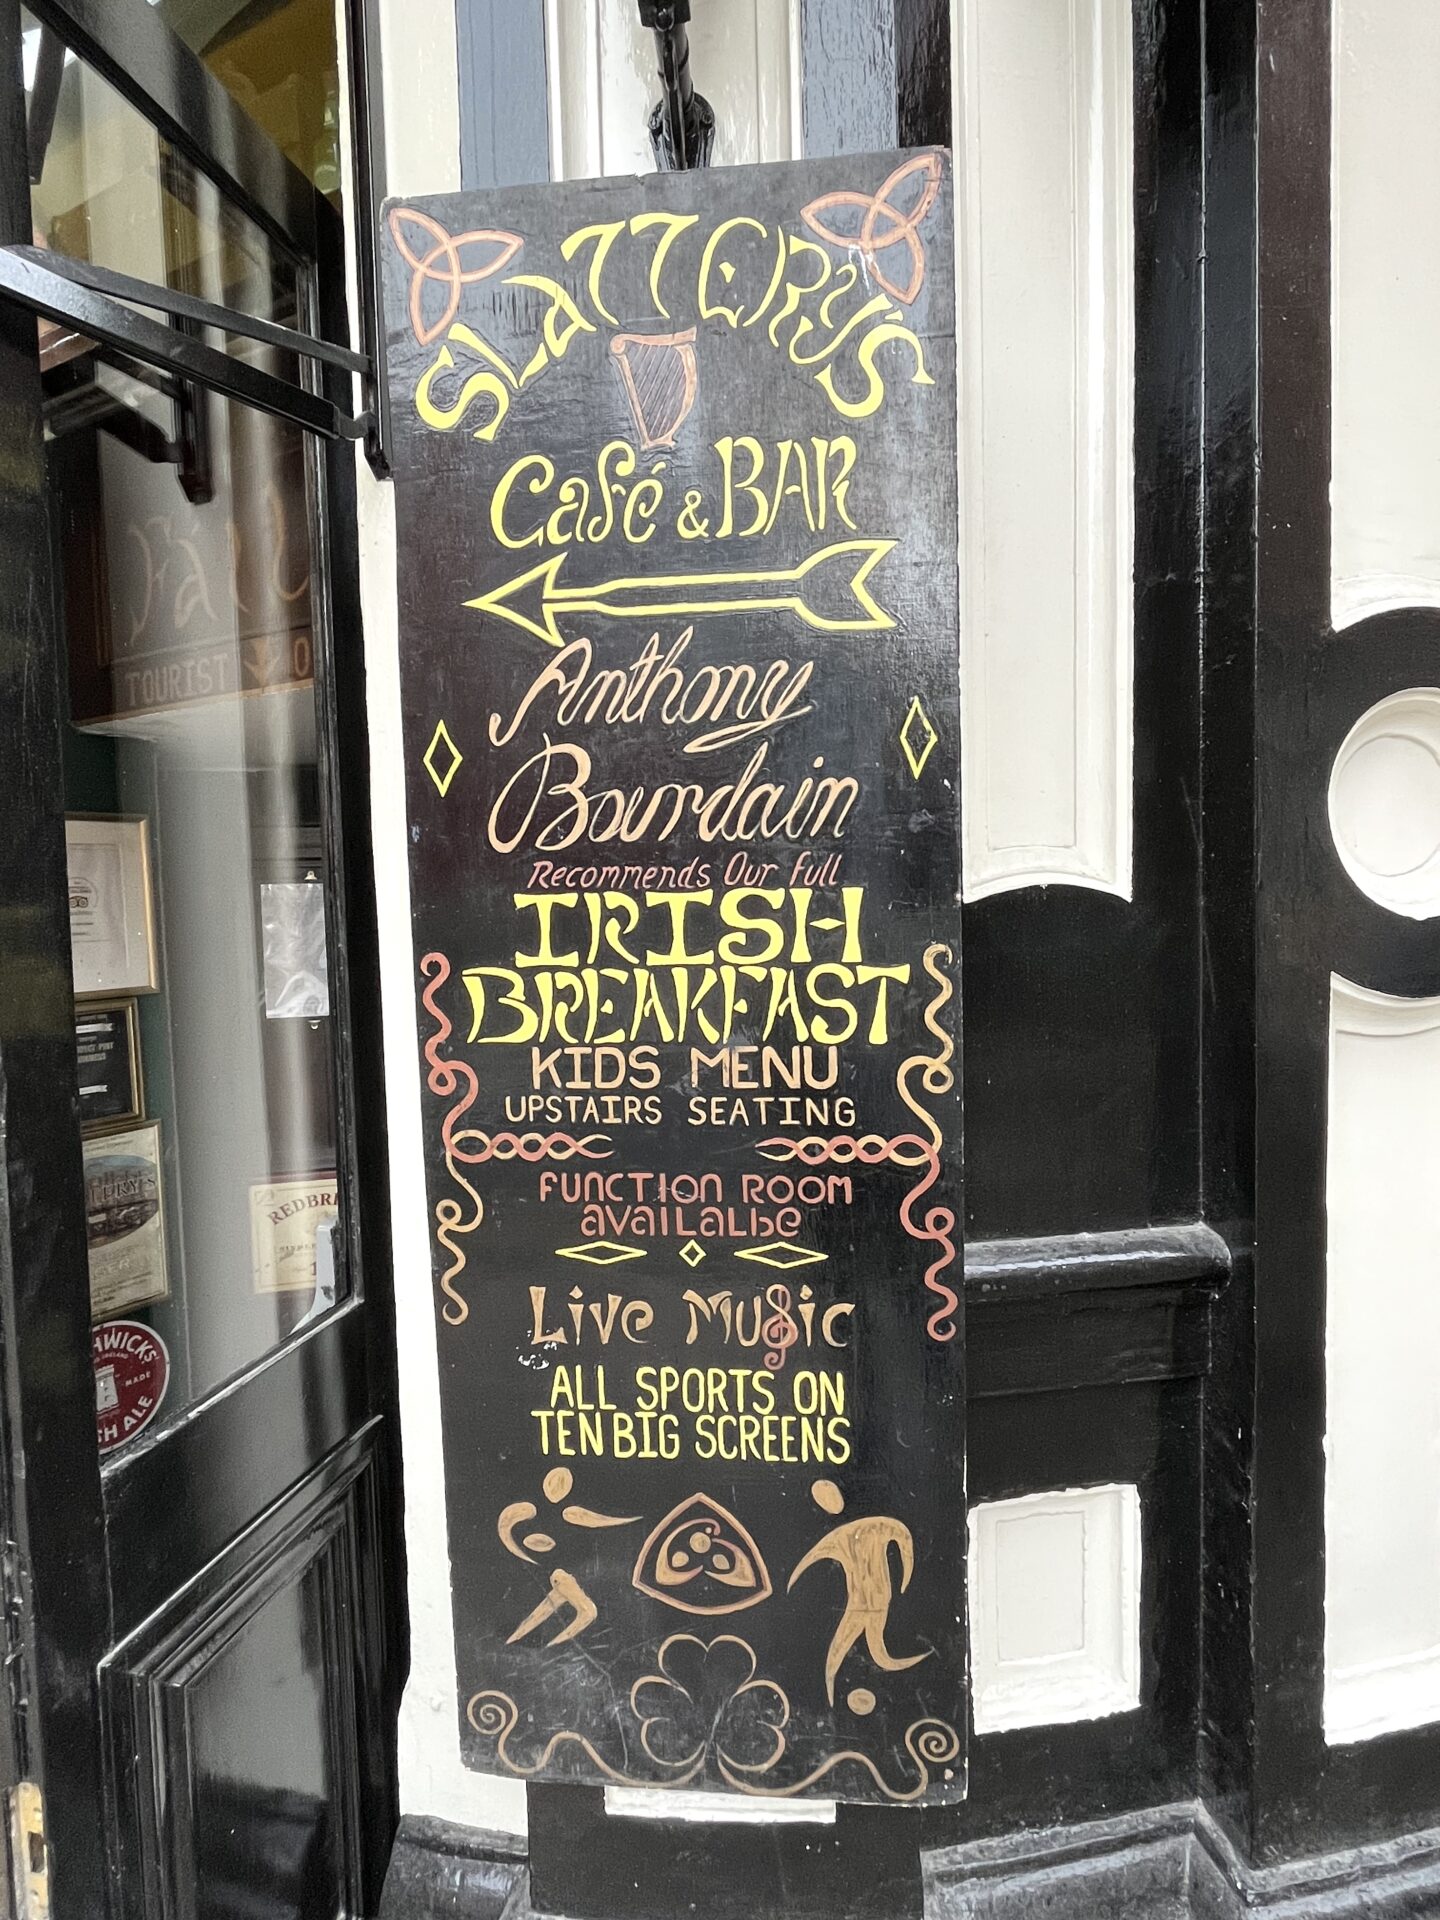 SLATTERY'S
Café & BAR
Anthony
Bourdain
Recommends Our Full
IRISH
BREAKFAST
KIDS MENU
UPSTAIRS SEATING
FUNCTION ROOM
avaiLaLbe
Live Music
ALL SPORTS ON
TEN BIG SCREENS
Fáil
TOURIST
REDBR
HWICKS
MADE
H ALE